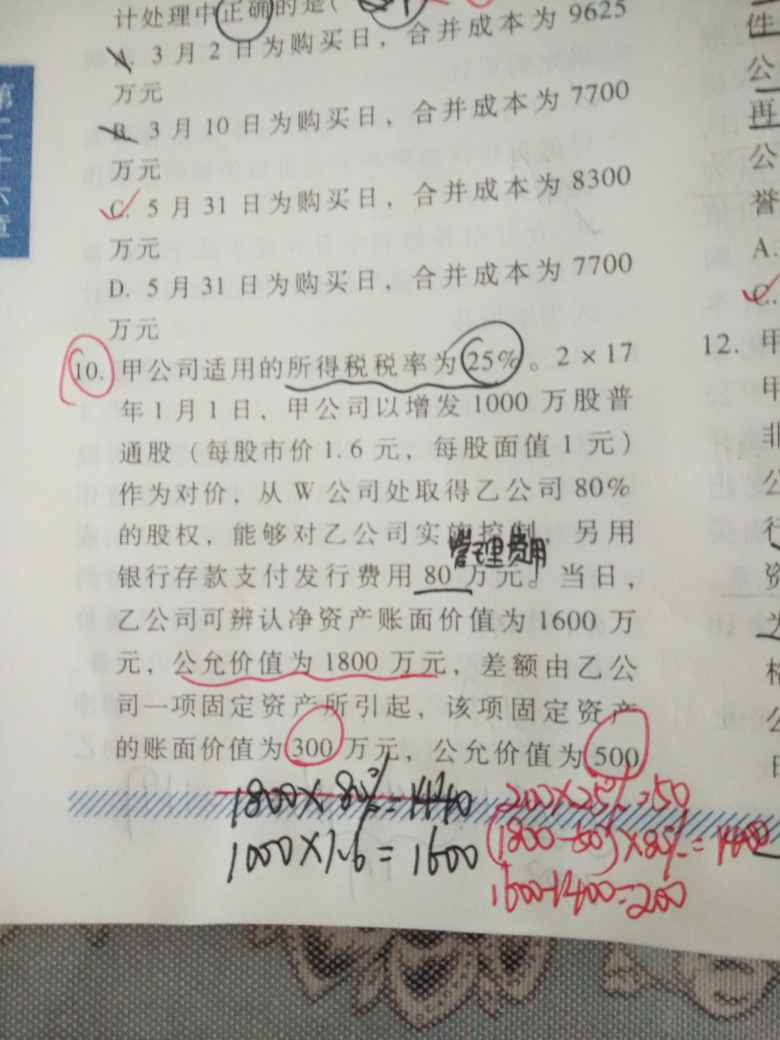 计处理中正确的是(
A. 3月2日为购买日，合并成本为9625
万元
B. 3月10日为购买日，合并成本为7700
万元
C. 5月31日为购买日，合并成本为8300
万元
D. 5月31日为购买日，合并成本为7700
万元
10. 甲公司适用的所得税税率为25%。2×17
年1月1日，甲公司以增发1000万股普
通股（每股市价1.6元，每股面值1元）
作为对价，从W公司处取得乙公司80%
的股权，能够对乙公司实施控制，另用
管理费用
银行存款支付发行费用80万元。当日，
乙公司可辨认净资产账面价值为1600万
元，公允价值为1800万元，差额由乙公
司一项固定资产所引起，该项固定资产
的账面价值为300万元，公允价值为500
1800×80%=1440
1000×1.6=1600
200×25%=50
(1800-50)×80%=1400
1600-1400=200
第二十六章
件
公
再
公
誉
A.
C.
12. 甲
甲
非
公
行
资
为
格
公
日